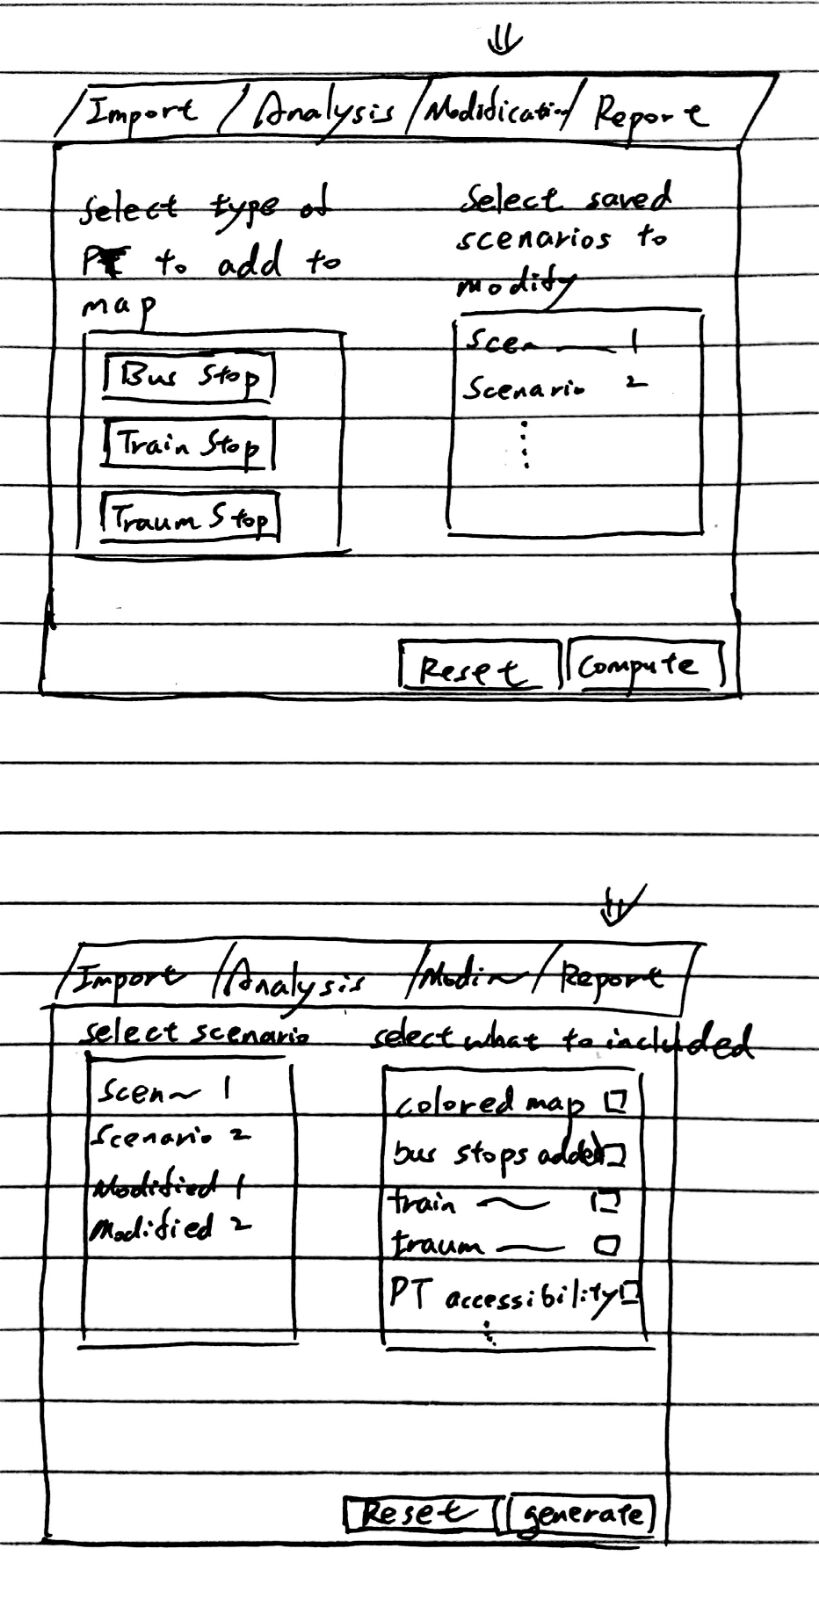 Import Analysis Modification Report
Select type of
PT to add to
map
Bus Stop
Train Stop
Traum Stop
Select saved
scenarios to
modify
Scen 1
Scenario 2
Reset Compute
Import Analysis Modi Report
select scenario
Scen 1
Scenario 2
Modified 1
Modified 2
select what to included
colored map
bus stops added
train
traum
PT accessibility
Reset generate